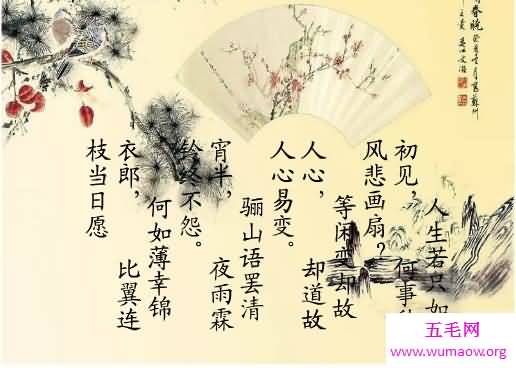 人生若只如
初见，何事秋
风悲画扇？
等闲变却故
人心，却道故
人心易变。
骊山语罢清
宵半，夜雨霖
铃终不怨。
何如薄幸锦
衣郎，比翼连
枝当日愿
五毛网
www.wumaow.org